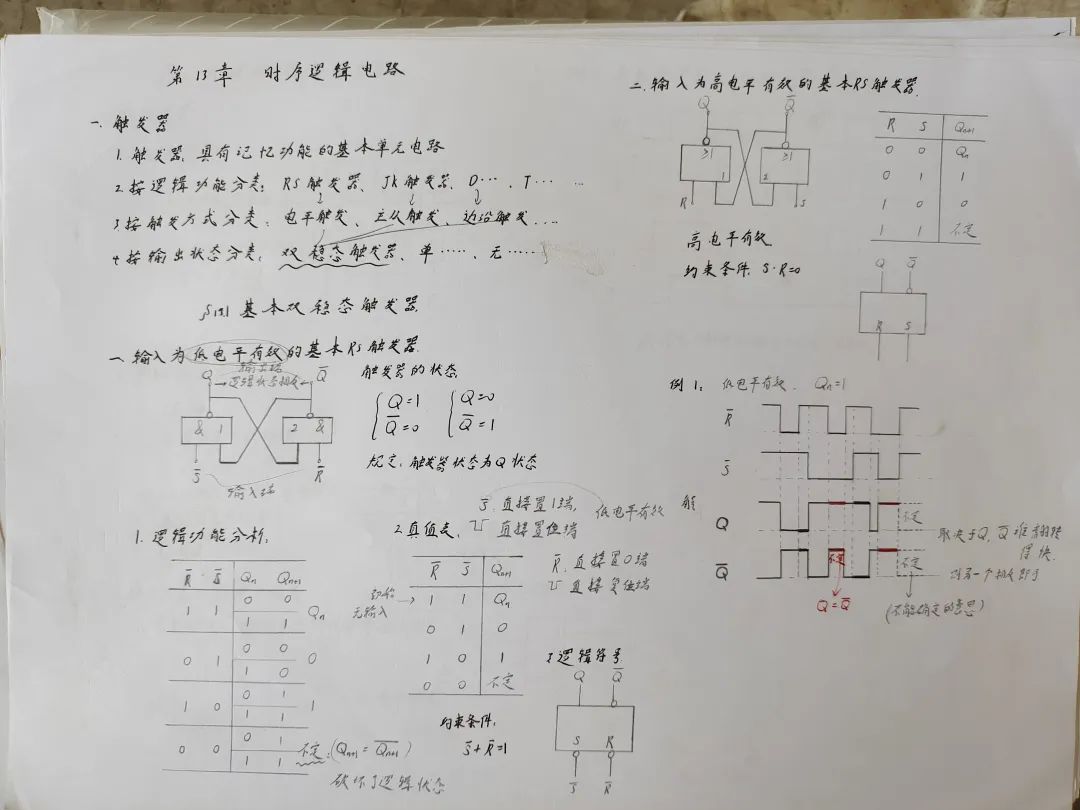 第13章 时序逻辑电路
一. 触发器
1. 触发器. 具有记忆功能的基本单元电路
2. 按逻辑功能分类: RS触发器、JK触发器、D…、T… …
3. 按触发方式分类: 电平触发、主从触发、边沿触发…
4. 按输出状态分类: 双稳态触发器、单……、无……
§13.1 基本双稳态触发器.
一. 输入为低电平有效的基本RS触发器.
输出端
Q →逻辑状态相反← Q̅
& 1 2 &
S̅ R̅
输入端
触发器的状态
Q=1 Q=0
Q̅=0 Q̅=1
规定: 触发器状态为Q状态
1. 逻辑功能分析.
R̅ S̅ Qn Qn+1
1 1 0 0 Qn
1 1
0 1 0 0 0
1 0
1 0 0 1 1
1 1
0 0 0 1 不定. (Qn+1 = Q̅n+1)
1 1
破坏了逻辑状态
2. 真值表.
S̅. 直接置1端.
直接置位端
低电平有效
R̅. 直接置0端
直接复位端
R̅ S̅ Qn+1
1 1 Qn
0 1 0
1 0 1
0 0 不定
无输入
约束条件.
S̅+R̅=1
3 逻辑符号
Q Q̅
S R
S̅ R̅
二. 输入为高电平有效的基本RS触发器.
Q Q̅
≥1 ≥1
1 2
R S
R S Qn+1
0 0 Qn
0 1 1
1 0 0
1 1 不定
高电平有效
约束条件. S·R=0
Q Q̅
R S
例1: 低电平有效. Qn=1
R̅
S̅
解
Q 不定
Q̅ 不定 不定
取决于Q, Q̅
Q=Q̅
(不能确定的意思)